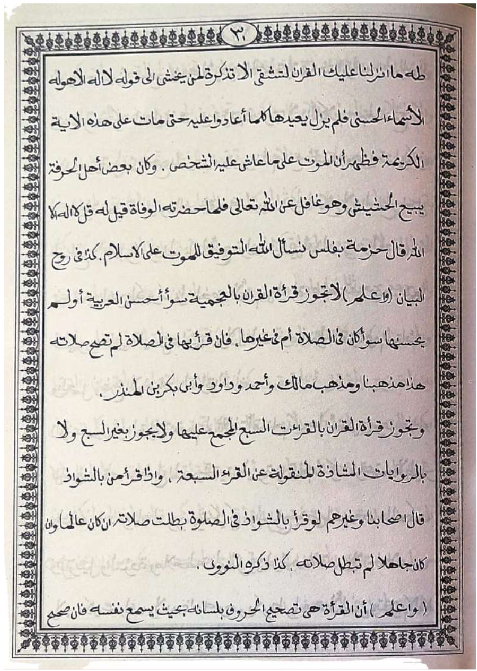 ٣٠
طه ما انزلنا عليك القران لتشقى الا تذكرة لمن يخشى الى قوله لا اله الا هوله
الأسماء الحسنى فلم يزل يعيدها كلما أعادوا عليه حتى مات على هذه الاية
الكريمة فظهر أن الموت على ما عاش عليه الشخص . وكان بعض أهل الحرفة
يبيع الحشيش وهو غافل عن الله تعالى فلما حضرته الوفاة قيل له قل لا اله الا
الله قال حزمة بفلس نسأل الله التوفيق للموت على الاسلام . كذا فى روح
البيان (واعلم) لا تجوز قرأة القران بالعجمية سوأ أحسن العربية أولم
يحسنها سوأ كان فى الصلاة أم فى غيرها. فان قرأ بها فى الصلاة لم تصح صلاته
هذا مذهبنا ومذهب مالك وأحمد وداود وأبى بكر بن المنذر.
وتجوز قرأة القران بالقرات السبع المجمع عليها ولا يجوز بغير السبع ولا
بالروايات الشاذة المنقولة عن القرء السبعة . واذا قرأ من بالشواذ
قال اصحابنا وغيرهم لو قرأ بالشواذ فى الصلوة بطلت صلاته ان كان عالما وان
كان جاهلا لم تبطل صلاته . كذا ذكره النووى .
(واعلم) أن القرأة هى تصحيح الحروف بلسانه بحيث يسمع نفسه فان صحيح